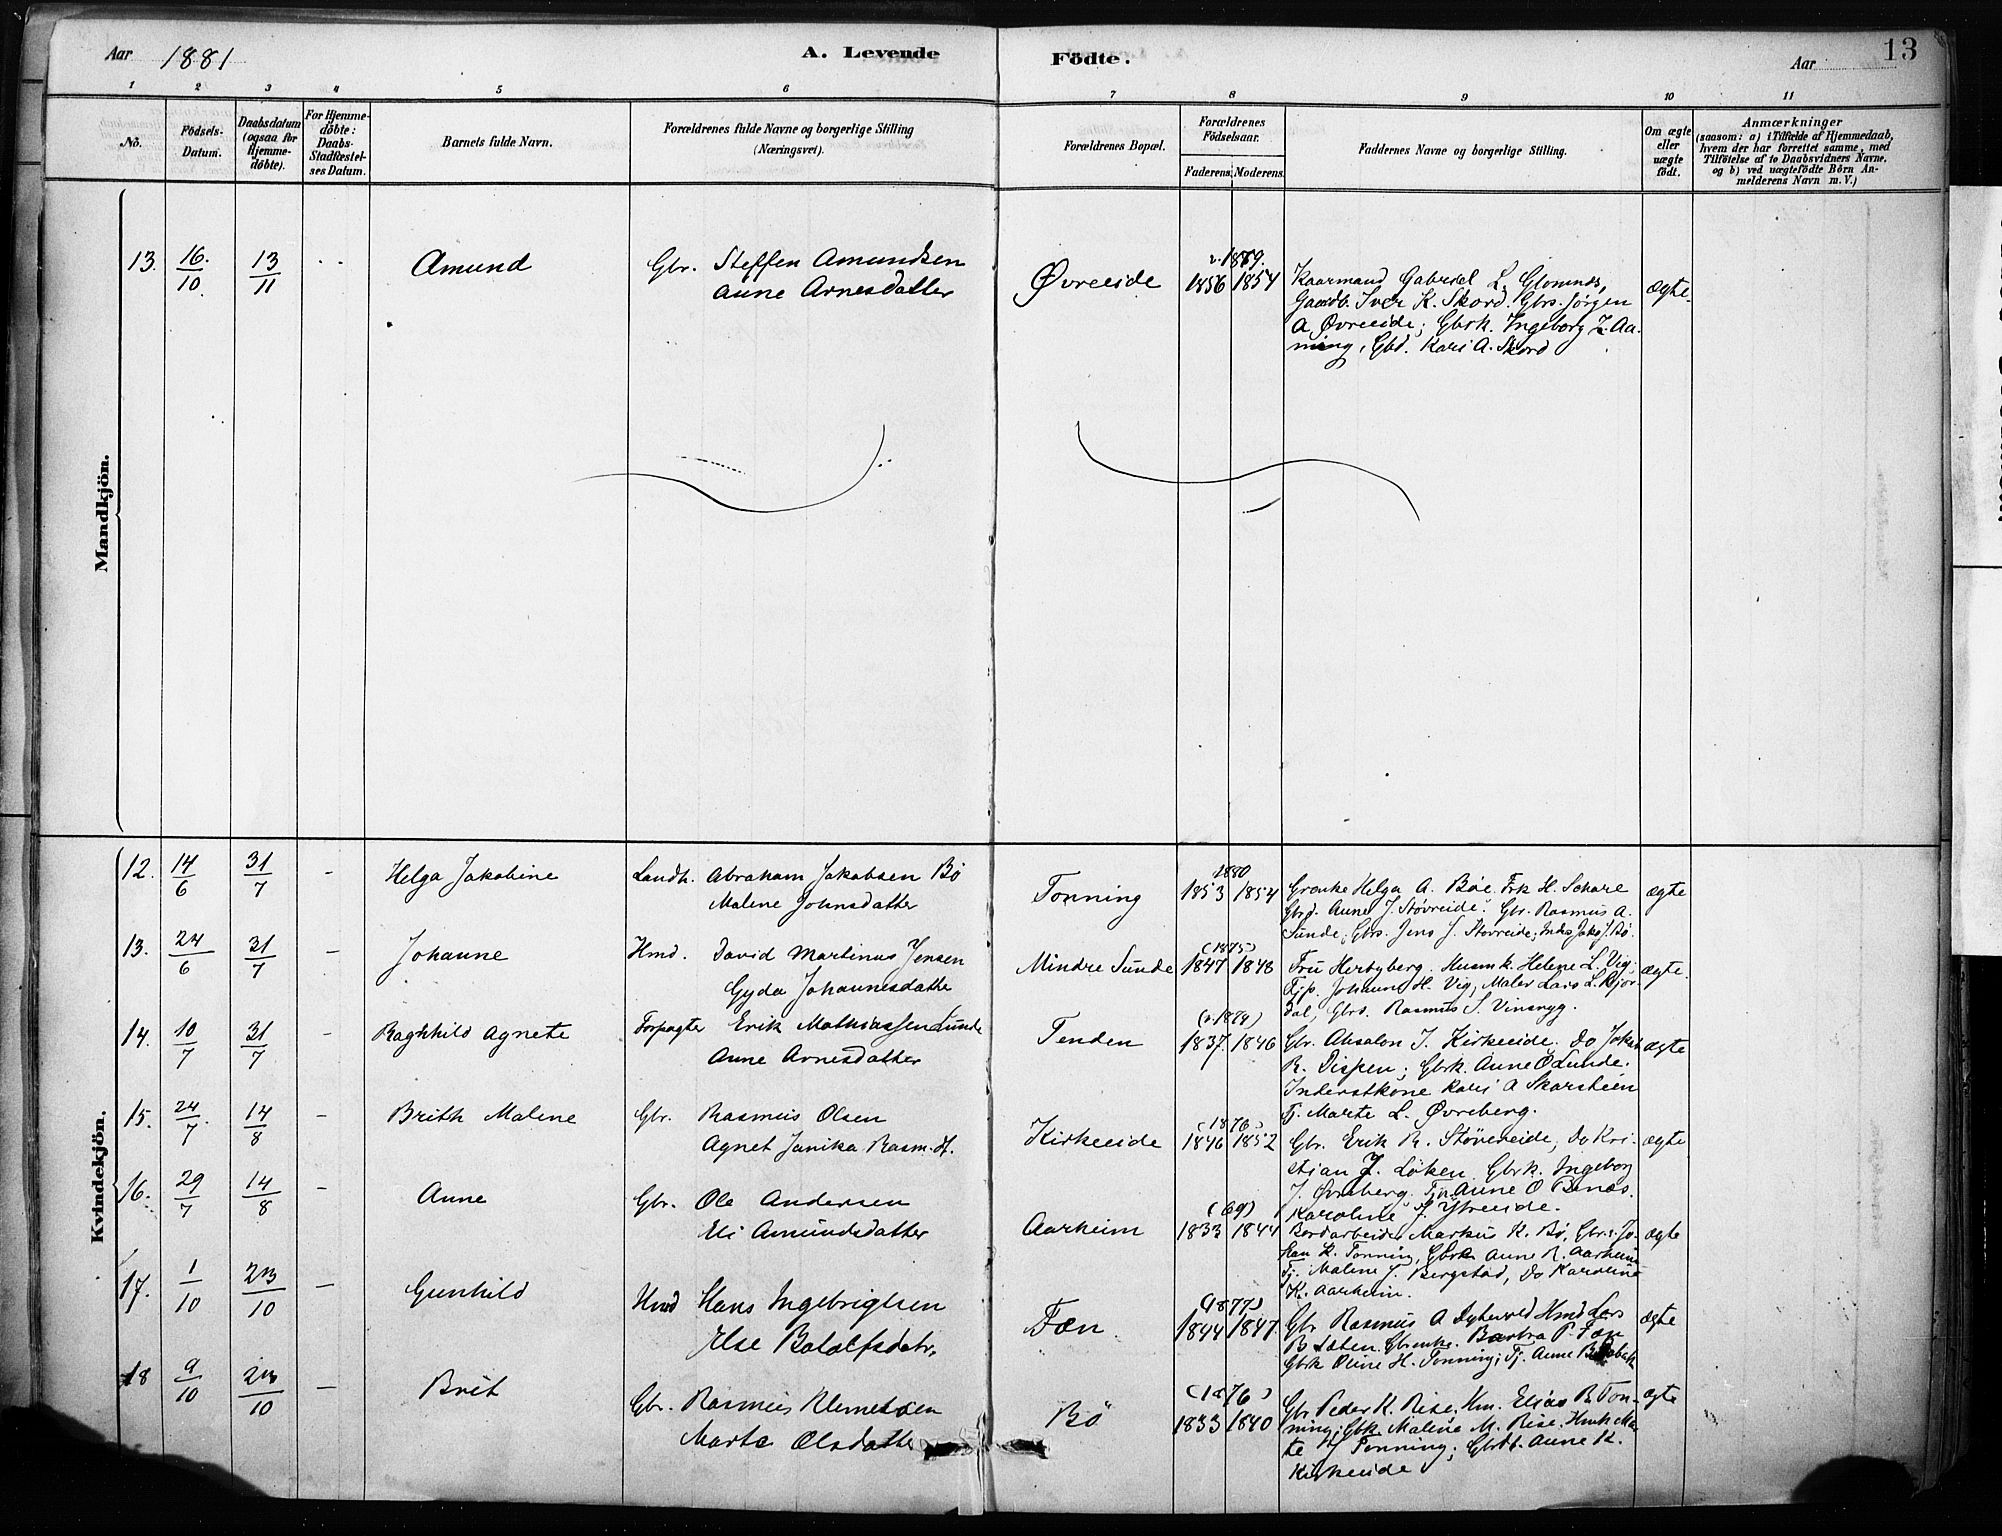 Aar 1881 A. Levende Födte. Aar 13
1 2 3 4 5 6 7 8 9 10 11
No.
Födsels-Datum.
Daabsdatum (ogsaa for Hjemmedöbte).
For Hjemmedöbte: Daabs-Stadfæstelses Datum.
Barnets fulde Navn.
Forældrenes fulde Navne og borgerlige Stilling (Næringsvei).
Forældrenes Bopæl.
Forældrenes Födselsaar.
Faderens. Moderens.
Faddernes Navne og borgerlige Stilling.
Om ægte eller uægte födt.
Anmærkninger
(saasom: a) i Tilfælde af Hjemmedaab,
hvem der har forrettet samme, med
Tilföielse af to Daabsvidners Navne.
og b) ved uægtefödte Börn Anmelderens Navn m. V.)
Mandkjön.
13. 16/10 13/11 Amund Gbr. Steffen Amundsen
Anne Arnesdatter
Øvreeide 1856 1854
Kaarmand Gabriel L. Glomnes,
Gaardb. Iver K. Skord. Gbrs. Jørgen
A. Øvreeide; Gbrk. Ingeborg Z. Aa-
ning, Gbd. Kari A. Skord
ægte.
Kvindekjön.
12. 14/6 31/7 - Helga Jakobine Landh. Abraham Jakobsen Bö
Malene Johnsdatter
Tonning 1880 1853 1854
Helga A. Böe. Frk H.
Gbrd. Anne J. Støvreide. Gbr. Rasmus A.
Sunde; Gbrs. Jens J. Støvreide; Jak. J. Bö.
ægte
13. 24/6 31/7 - Johanne Hmd. David Martinus Jensen
Gyda Johannesdatter
Mindre Sunde (1875) 1847 1848
Fru Herbyberg. Husmk. Helene L. Vig;
Johanne H. Vig, Maler Lars L.
dal, Gbrs. Rasmus S. Vinsryg.
ægte.
14. 10/7 31/7 - Raghhild Agnete Forpagter Erik Mathiassen Lunde
Anne Arnesdatter
Tenden (1874) 1837. 1846
Gbr. Absalon J. Kirkeeide. Do Jakob
R. Dispen; Gbrk. Anne O Lunde.
Inderstkone Kari A Skarstein
Tj. Marte L. Øvreberg.
ægte
15. 24/7. 14/8 - Brith Malene Gbr. Rasmus Olsen
Agnet Janika Rasm. dt.
Kirkeeide (1876) 1846 1852
Gbr. Erik R. Støvereide, Do Kri-
stian J. Löken Gbrk. Ingeborg
J. Øvreberg. Tj. Anne O Tenes.
Karoline J. Ytreeide.
ægte
16. 29/7 14/8 - Anne Gbr. Ole Andersen
Eli Amundsdatter
Aarheim (69) 1833 1844
Bordarbeider Markus K. Bö, Gbrs. Jo-
han R. Tonning, Gbrk Anne R. Aarheim
Tj. Malene J. Bergstad, Do Karoline
K. Aarheim.
ægte
17. 1/10 23/10 - Gunhild Hmd Hans Ingebrigtsen
Else Botolfsdatr.
Fæn. (1877) 1844 1847.
Gbr Rasmus A Hmd Lars
Barbra P. Fæn
Gbrk Oline H. Tonning; Tj. Anne
ægte
18 9/10 23/10 - Brit Gbr. Rasmus Klemetsen
Marte Olsdatter
Bö (1876) 1833 1840
Gbr. Peder K. Rise. Hm. Elias R. Ton-
ning; Gbk. Maline M. Rise. Hmk Ma-
te Tonning; Gbrdt. Anne K.
Kirkeeide
ægte